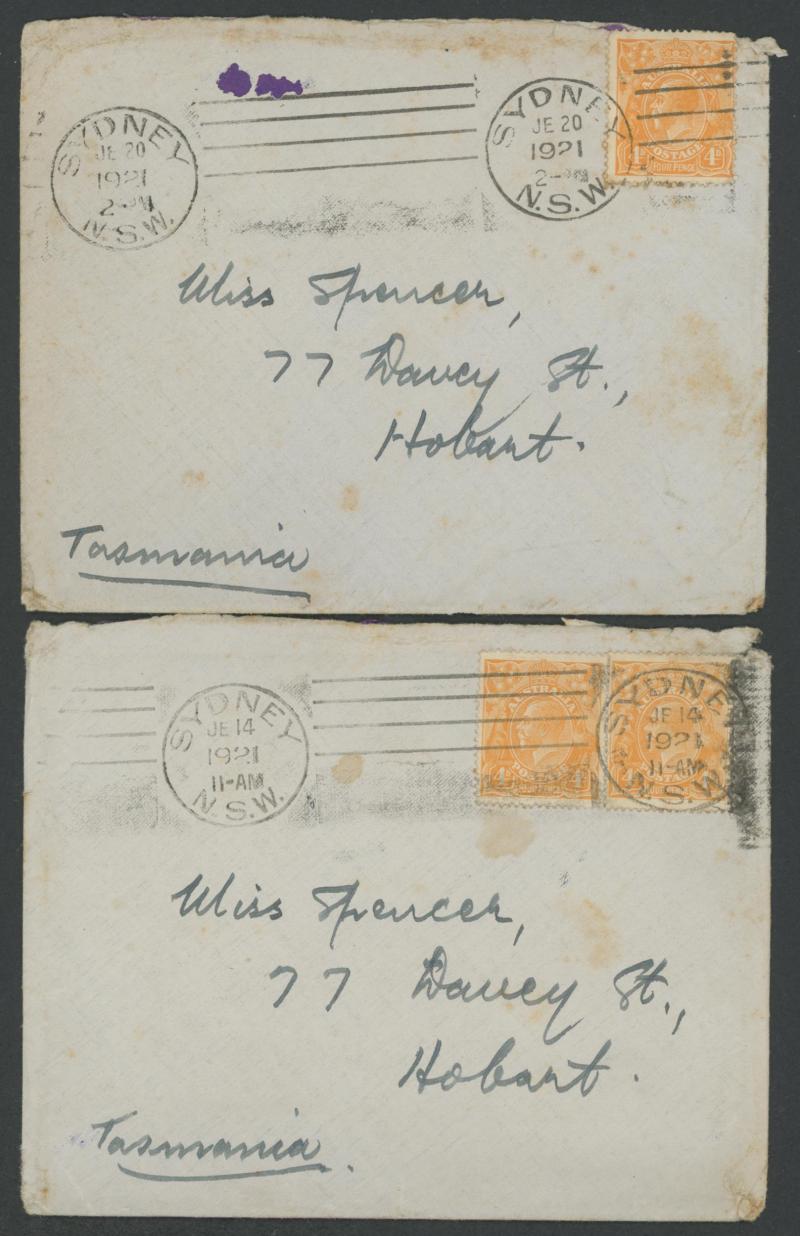 SYDNEY
JE 20
1921
2-PM
N.S.W.
SYDNEY
JE 20
1921
2-PM
N.S.W.
AUSTRALIA
4D POSTAGE 4D
FOUR PENCE
Miss Spencer,
77 Davey St.,
Hobart.
Tasmania
SYDNEY
JE 14
1921
11-AM
N.S.W.
AUSTRALIA
SYDNEY
JE 14
1921
11-AM
N.S.W.
Miss Spencer,
77 Davey St.,
Hobart.
Tasmania.